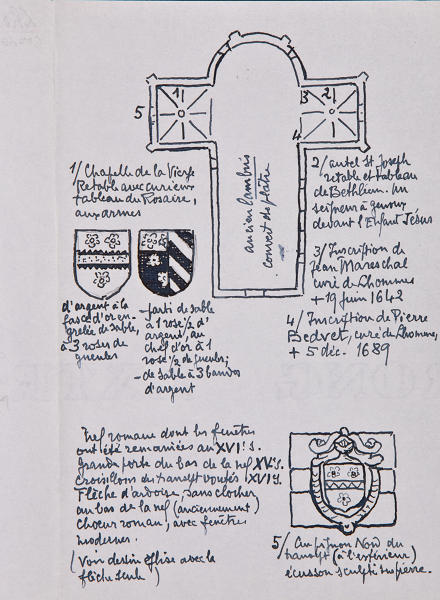 1
2
3
4
5
ancien lambris
couvert de plâtre
1/ Chapelle de la Vierge
Retable avec curieux
tableau du Rosaire,
aux armes
d'argent à la
fasce d'or en-
grelée de sable,
à 3 roses de
gueules
- parti de sable
à 1 rose 1/2 d'
argent, au
chef d'or à 1
rose 1/2 de gueules;
- de sable à 3 bandes
d'argent
2/ autel St Joseph
retable et tableau
de Bethléem. un
seigneur à genoux
devant l'Enfant Jésus
3/ Inscription de
Jean Mareschal
curé de Lhommes
+ 19 juin 1642
4/ Inscription de Pierre
Bedvet, curé de Lhomme,
+ 5 déc. 1689
Nef romane dont les fenêtres
ont été remaniées au XVIe s.
Grande porte du bas de la nef XVe s.
Croisillons du transept voûtés (XVIe s.
Flèche d'ardoise, sans clocher
au bas de la nef (anciennement)
Choeur roman, avec fenêtres
modernes.
(Voir dessin église avec la
flèche seule)
5/ Au pignon Nord du
transept (à l'extérieur)
écusson sculpté sur pierre.